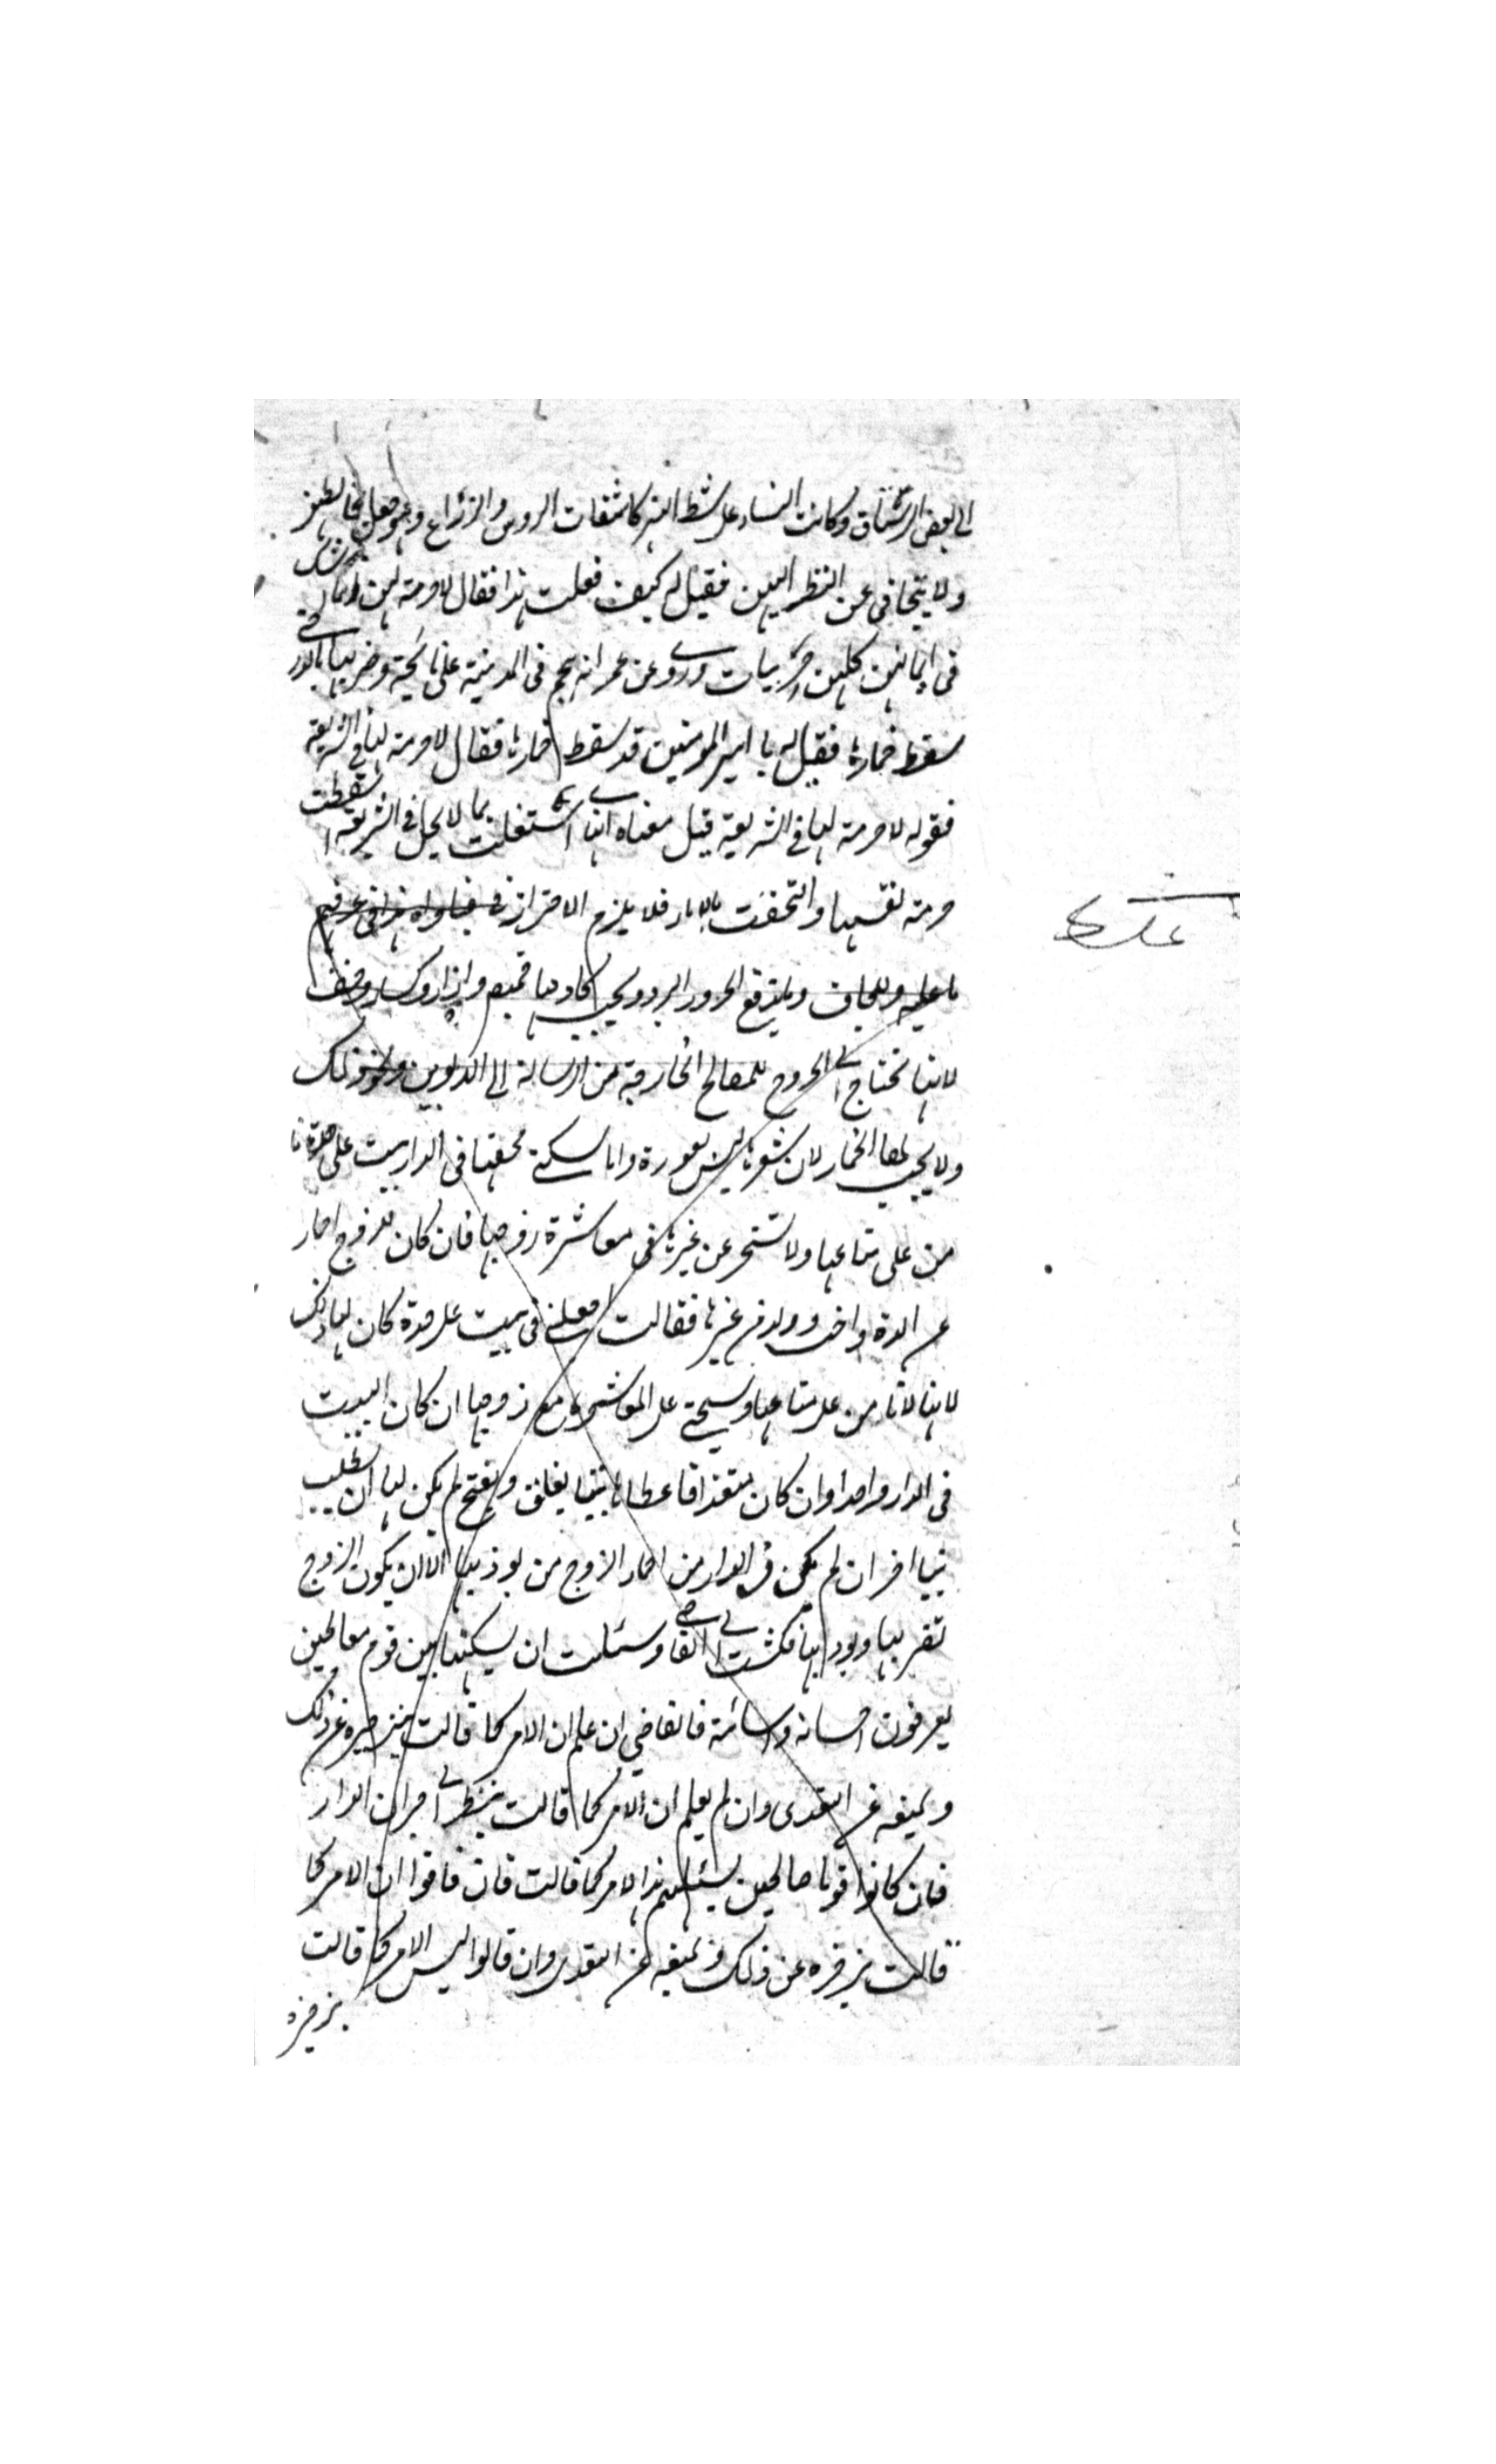 الى بعض الرستاق وكانت النساء على شط النهر كاشفات الروس والذراع وهو
ولا يتحافى عن النظر اليهن فقيل له كيف فعلت هذا فقال لا حرمة لهن وانما الشك
فى ايمانهن كلهن حربيات وروى عن عمر انه هجم فى المدينة على نايحة وضربها بالدرة حتى
سقط خمارها فقيل له يا امير المومنين قد سقط خمارها فقال لا حرمة لها فى الشريعة
فقوله لا حرمة لها فى الشريعة قيل معناه انها لما اشتغلت بما لا يحل فى الشريعة اسقطت
حرمة نفسها والتحقت بالاماء فلا يلزم الاحتراز
ما عليه وللحاف وما يدفع الحر والبرد ويجب لخادمها قميص وازار وكساء وخف
لانها تحتاج الى الخروج للمصالح الخارجة من الرسالة الى الدلوين ونحو ذلك
ولا يجب لها الخمار لان شعرها ليس بعورة واما السكنى فحقها فى الدار بيت على حدة
من على متاعها ولا تستحى عن غيرها فى معاشرة زوجها فان كان للزوج احماء
من الدة واخت وولد من غيرها فقالت اجعلنى فى بيت على حدة كان لها ذلك
لانها لا تامن على متاعها وتستحى على المعاشرة مع زوجها ان كان البيت
فى الدار واحدا وان كان متعددا فاعطاها بيتا يغلق ويفتح لم يكن لها ان تطلب
بيتا اخر ان لم يكن فى الدار من احماء الزوج من يوذيها الا ان يكون الزوج
تضربها ويوذيها فشكت الى القاضى وسئلت ان يسكنها بين قوم صالحين
يعرفون احسانه واسائته فالقاضى ان علم ان الامر كما قالت زجره عن ذلك
ويمنعه عن التعدى وان لم يعلم ان الامر كما قالت ينظر الى جيران الدار
فان كانوا قوما صالحين يسئلهم هذا الامر كما قالت فان قالوا ان الامر كما
قالت يزجره عن ذلك ويمنعه عن التعدى وان قالوا ليس الامر كما قالت
يزجره